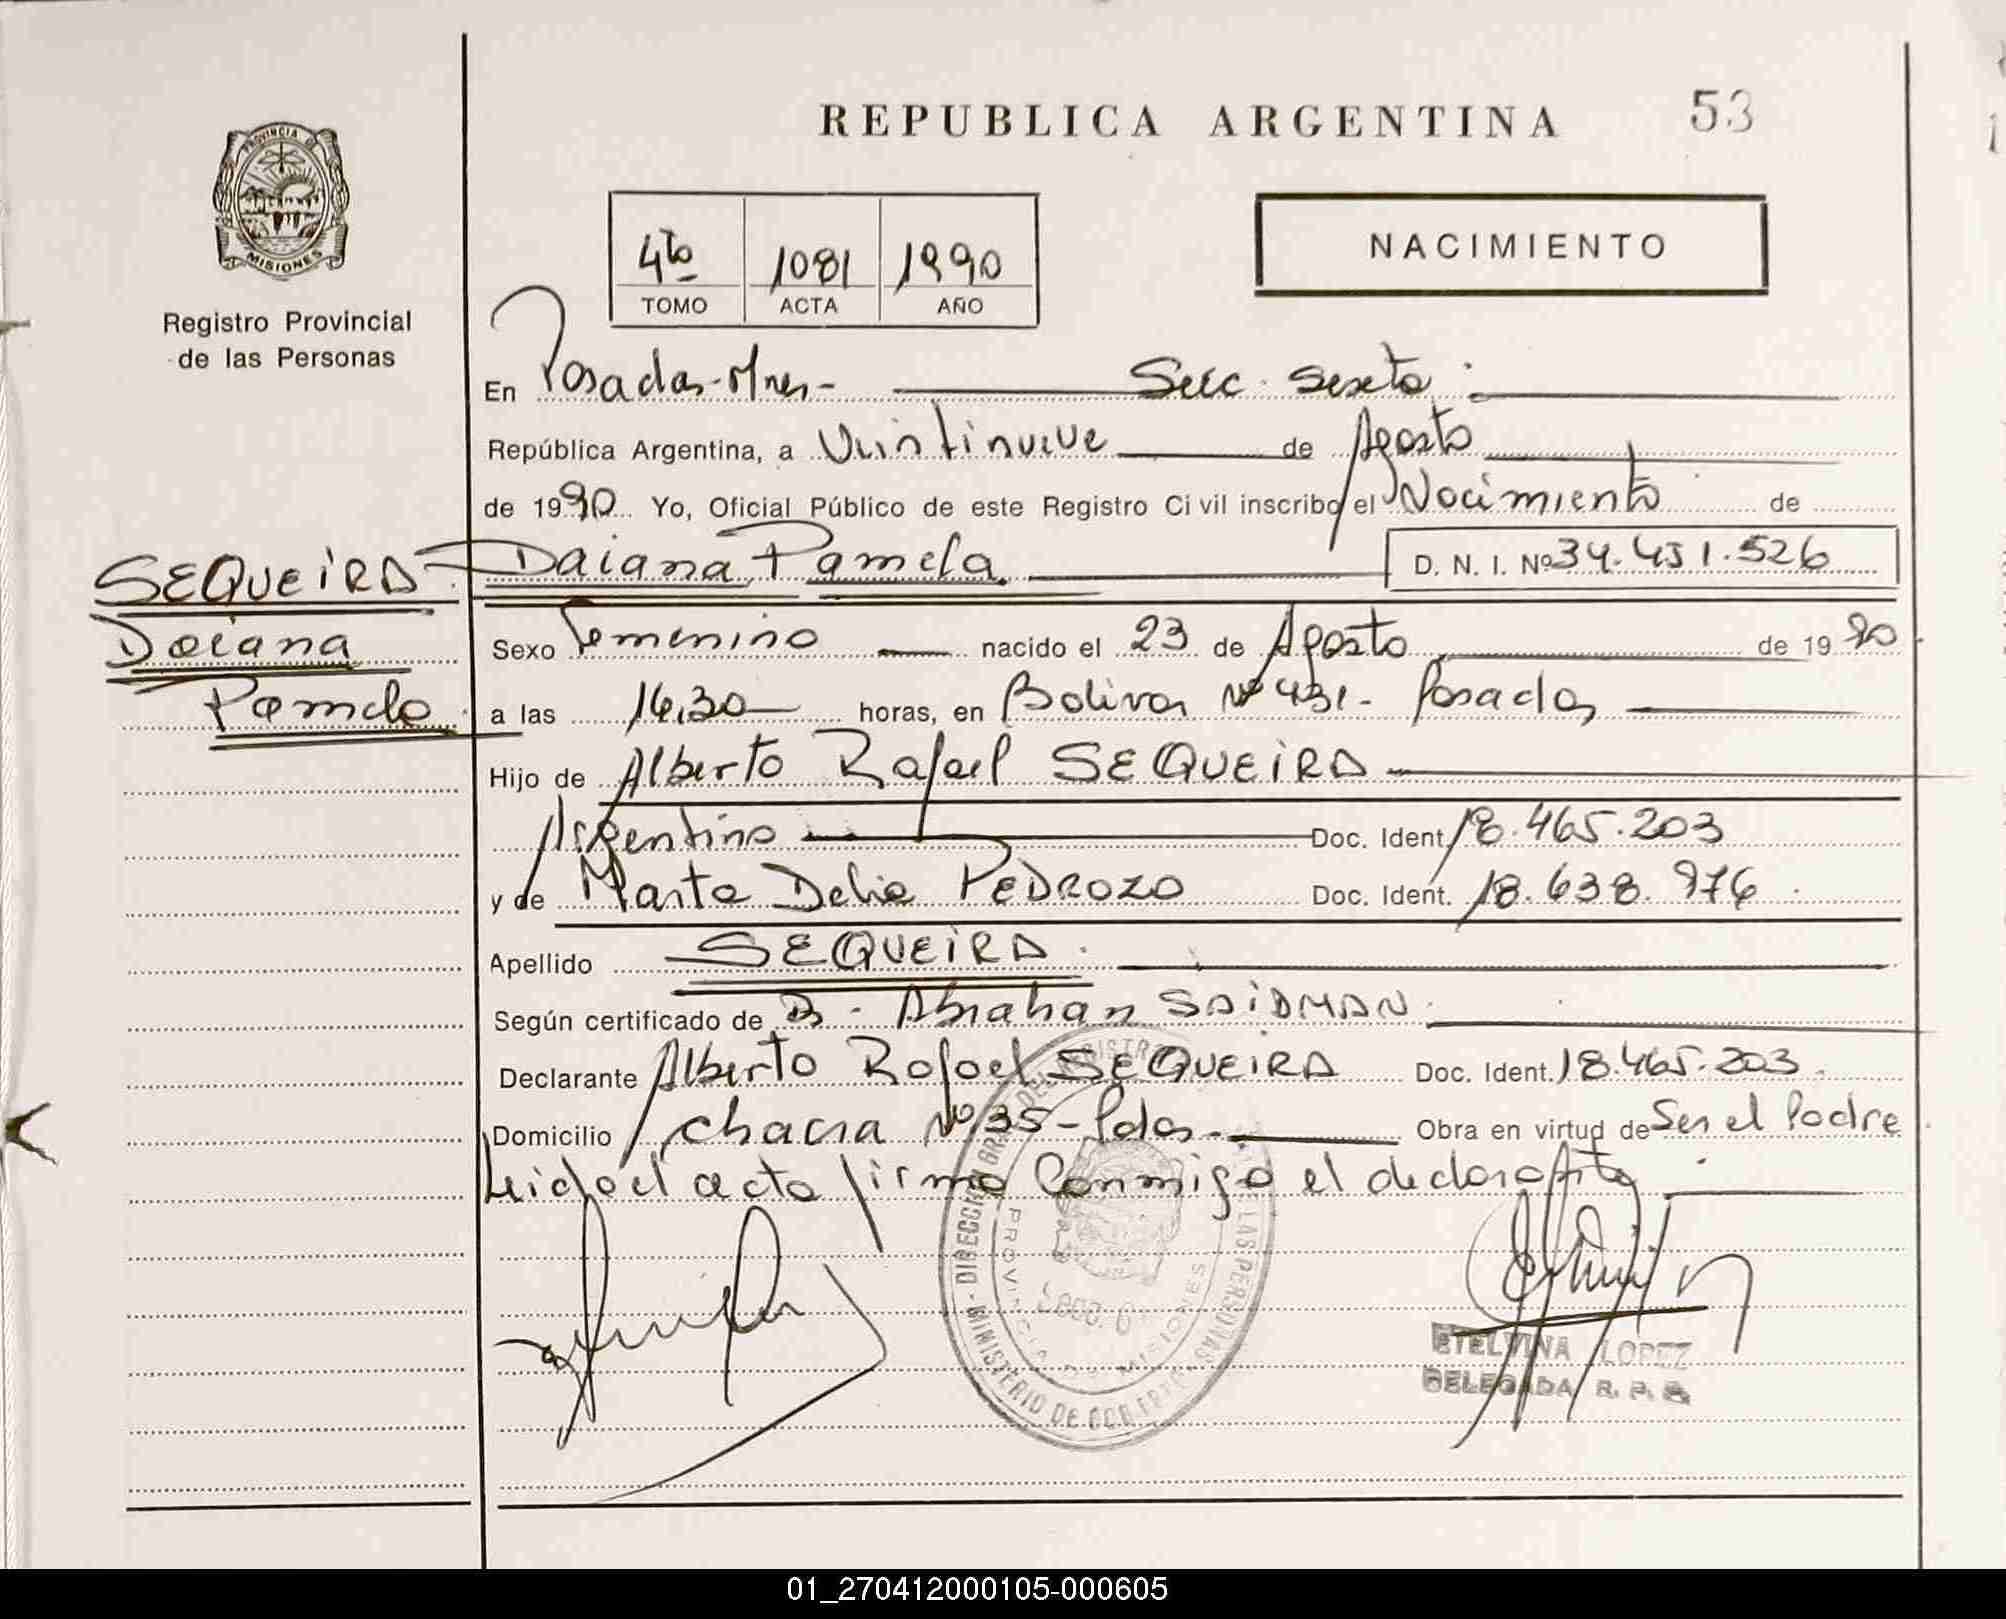 REPUBLICA ARGENTINA 53
PROVINCIA DE
MISIONES
Registro Provincial
de las Personas
4to 1081 1990
TOMO ACTA AÑO
NACIMIENTO
En Posadas-Mnes- Secc. Sexta
República Argentina, a Veintinueve de Agosto
de 1990 Yo, Oficial Público de este Registro Civil inscribo el Nacimiento de
SEQUEIRA Daiana Pamela D. N. I. Nº 34.451.526
Daiana
Pamela
Sexo Femenino nacido el 23 de Agosto de 1990
a las 14,30 horas, en Bolivar Nº 431- Posadas
Hijo de Alberto Rafael SEQUEIRA
Argentino Doc. Ident. 18.465.203
y de Marta Delia PEDROZO Doc. Ident. 18.638.976
Apellido SEQUEIRA
Según certificado de Dr. Abrahan SAIDMAN
Declarante Alberto Rafael SEQUEIRA Doc. Ident. 18.465.203
Domicilio chacra Nº 35-Pdas- Obra en virtud de Ser el Padre
Leido el acta firma conmigo el declarante
DIRECCION GRAL DEL REGISTRO DE LAS PERSONAS
MINISTERIO DE GOBIERNO
PROVINCIA DE MISIONES
ETELVINA LOPEZ
DELEGADA R. P. P.
01_270412000105-000605